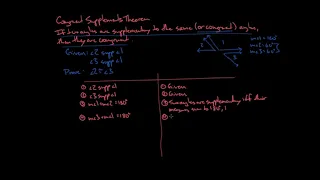 Congruent Supplements Theorem
If two angles are supplementary to the same (or congruent) angles,
then they are congruent.
Given: ∠2 suppl ∠1
∠3 suppl ∠1
Prove: ∠2 ≅ ∠3
1
2
3
① ∠2 suppl ∠1
② ∠3 suppl ∠1
③ m∠1+m∠2=180°
④ m∠3+m∠1=180°
① Given
② Given
③ Two angles are supplementary iff their
measures sum to 180°, 1
④